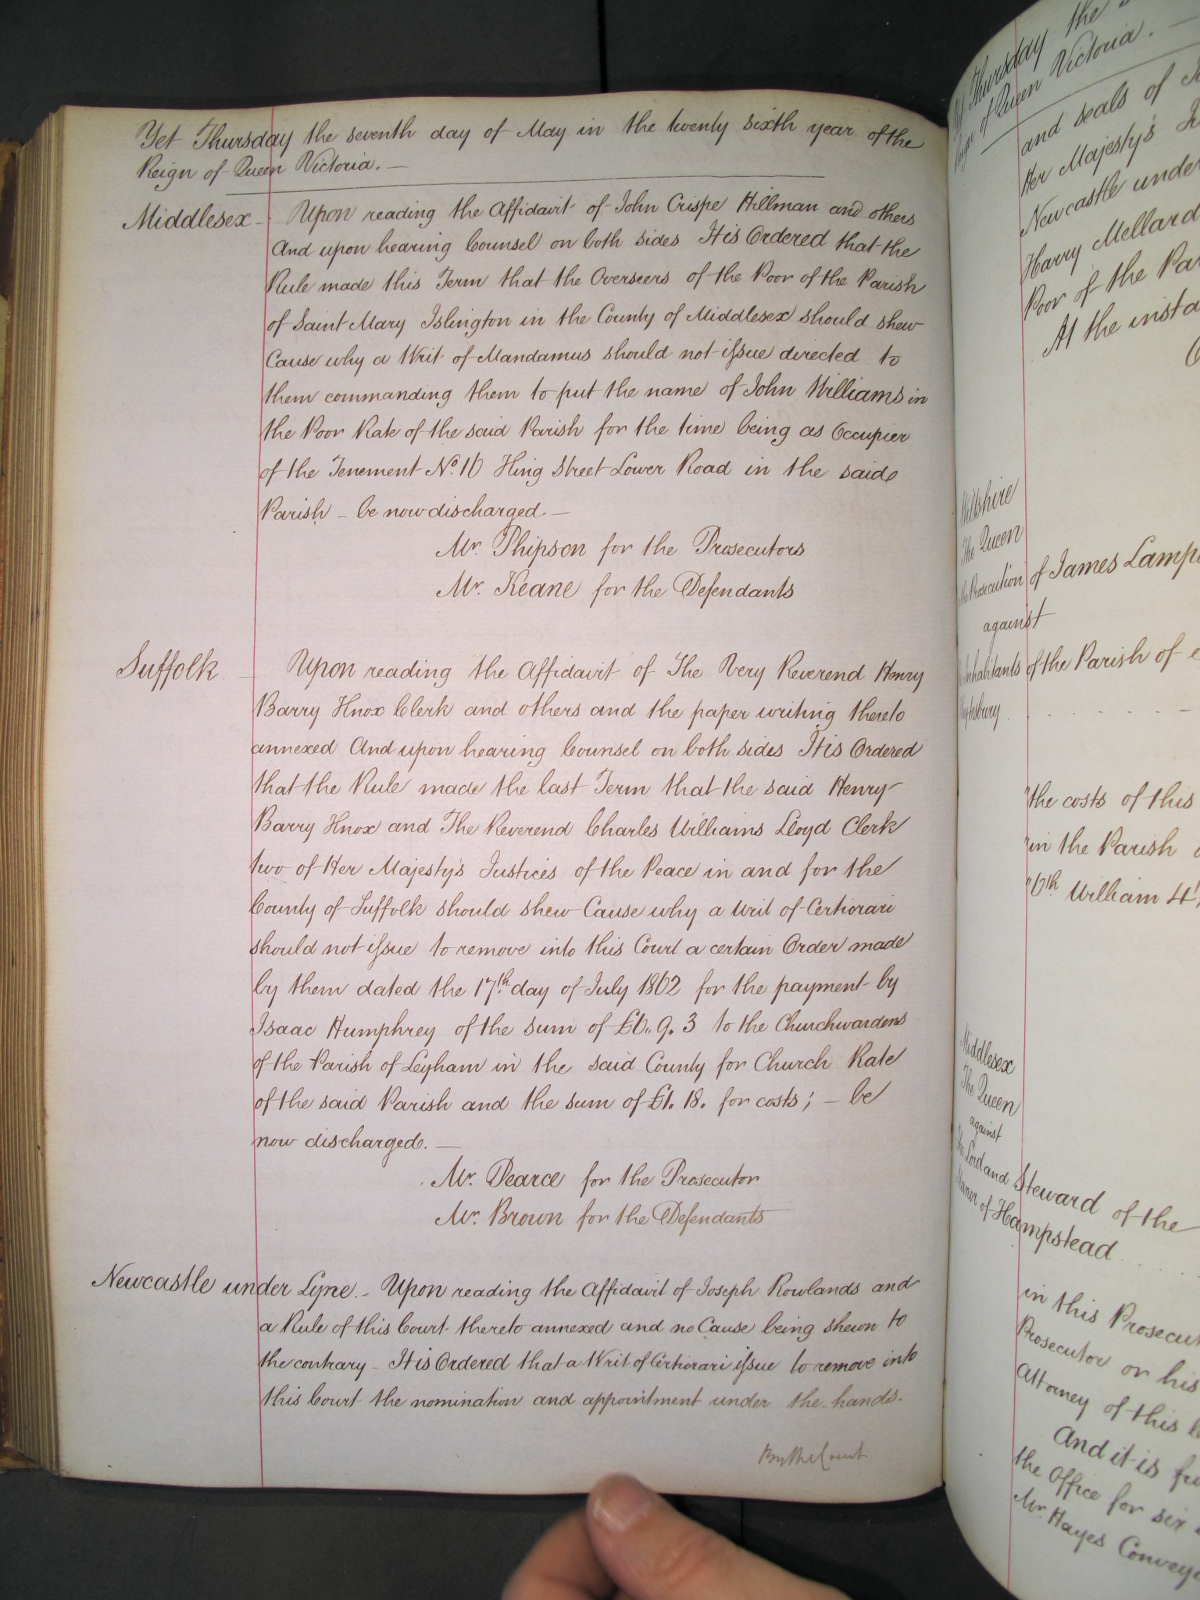 Yet Thursday the seventh day of May in the twenty sixth year of the
Reign of Queen Victoria. —
Middlesex - Upon reading the Affidavit of John Crispe Hillman and others
And upon hearing Counsel on both sides It is Ordered that the
Rule made this Term that the Overseers of the Poor of the Parish
of Saint Mary Islington in the County of Middlesex should shew
Cause why a Writ of Mandamus should not issue directed to
them commanding them to put the name of John Williams in
the Poor Rate of the said Parish for the time being as Occupier
of the Tenement No. 16 King Street Lower Road in the said
Parish - be now discharged —
Mr. Phipson for the Prosecutors
Mr. Keane for the Defendants
Suffolk - Upon reading the Affidavit of The Very Reverend Henry
Barry Knox Clerk and others and the paper writing thereto
annexed And upon hearing Counsel on both sides It is Ordered
that the Rule made the last Term that the said Henry
Barry Knox and The Reverend Charles Williams Lloyd Clerk
two of Her Majesty's Justices of the Peace in and for the
County of Suffolk should shew Cause why a Writ of Certiorari
should not issue to remove into this Court a certain Order made
by them dated the 17th day of July 1862 for the payment by
Isaac Humphrey of the sum of £6. 9. 3 to the Churchwardens
of the Parish of Leyham in the said County for Church Rate
of the said Parish and the sum of £1. 18. for costs; - be
now discharged. —
Mr. Pearce for the Prosecutor
Mr. Brown for the Defendants
Newcastle under Lyne. - Upon reading the Affidavit of Joseph Rowlands and
a Rule of this Court thereto annexed and no Cause being shewn to
the contrary - It is Ordered that a Writ of Certiorari issue to remove into
this Court the nomination and appointment under the hands
By the Court
Thursday the
Reign of Queen Victoria. —
and seals of
Her Majesty's
Newcastle under
Harry Mellard
Poor of the Par
At the insta
Wiltshire
The Queen
Prosecution of James Lamp
against
Inhabitants of the Parish of
the costs of this
in the Parish
6th William 4
Middlesex
The Queen
against
The Lord and Steward of the
Manor of Hampstead
in this Prosecut
Prosecutor or his
Attorney of this
And it is fu
the Office for six
Mr. Hayes Convey